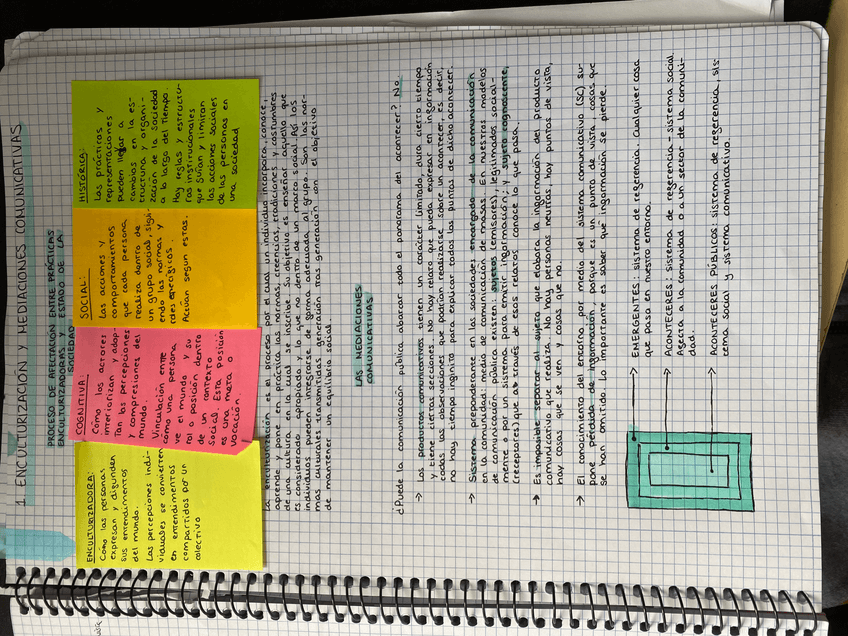 1. ENCULTURIZACIÓN Y MEDIACIONES COMUNICATIVAS
PROCESO DE AFECTACIÓN ENTRE PRÁCTICAS
ENCULTURIZADORAS Y ESTADO DE LA
SOCIEDAD
ENCULTURIZADORA:
Cómo las personas
expresan y difunden
sus entendimientos
del mundo.
Las percepciones indi-
viduales se convierten
en entendimientos
compartidos por un
colectivo
COGNITIVA:
Cómo los actores
interiorizan y adap-
tan las percepciones
y compresiones del
mundo.
Vinculación entre
cómo una persona
ve el mundo y su
rol o posición dentro
de un contexto
social. Esta posición
es una meta o
vocación.
SOCIAL:
Las acciones y
comportamientos
que cada persona
realiza dentro de
un grupo social, sigui-
endo las normas y
roles específicos.
Actúan según estas.
HISTÓRICA:
Las prácticas y
representaciones
pueden llegar a
cambios en la es-
tructura y organi-
zación de la sociedad
a lo largo del tiempo.
Hay reglas y estructu-
ras institucionales
que guían y limitan
las acciones sociales
de las personas en
una sociedad
La enculturización es el proceso por el cual un individuo incorpora, conoce,
aprende y pone en práctica las normas, creencias, tradiciones y costumbres
de una cultura en la cual se inscribe. Su objetivo es enseñar aquello que
es considerado apropiado y lo que no dentro de un marco social. Así los
individuos pueden integrarse de forma adecuada al grupo. Son las nor-
mas culturales transmitidas generación tras generación con el objetivo
de mantener un equilibrio social.
LAS MEDIACIONES
COMUNICATIVAS
¿Puede la comunicación pública abarcar todo el panorama del acontecer? No
→ Los productos comunicativos tienen un carácter limitado, dura cierto tiempo
y tiene ciertas secciones. No hay relato que pueda expresar en información
todas las observaciones que podrían realizarse sobre un acontecer, es decir,
no hay tiempo infinito para explicar todos los puntos de dicho acontecer.
→ Sistema preponderante en las sociedades encargado de la comunicación
en la comunidad: medio de comunicación de masas. En nuestros modelos
de comunicación pública existen sujetos (emisores), legitimados social-
mente o por un sistema para emitir información, y sujeto cognoscente,
(receptores) que a través de esos relatos conoce lo que pasa.
→ Es imposible separar al sujeto que elabora la información del producto
comunicativo que realiza. No hay personas neutras, hay puntos de vista,
hay cosas que se ven y cosas que no.
→ El conocimiento del entorno por medio del sistema comunicativo (SC) su-
pone pérdida de información, porque es un punto de vista, cosas que
se han omitido. Lo importante es saber qué información se pierde.
→ EMERGENTES: sistema de referencia. Cualquier cosa
que pasa en nuestro entorno.
→ ACONTECERES: sistema de referencia - sistema social.
Afecta a la comunidad o a un sector de la comuni-
dad.
→ ACONTECERES PÚBLICOS: sistema de referencia, sis-
tema social y sistema comunicativo.